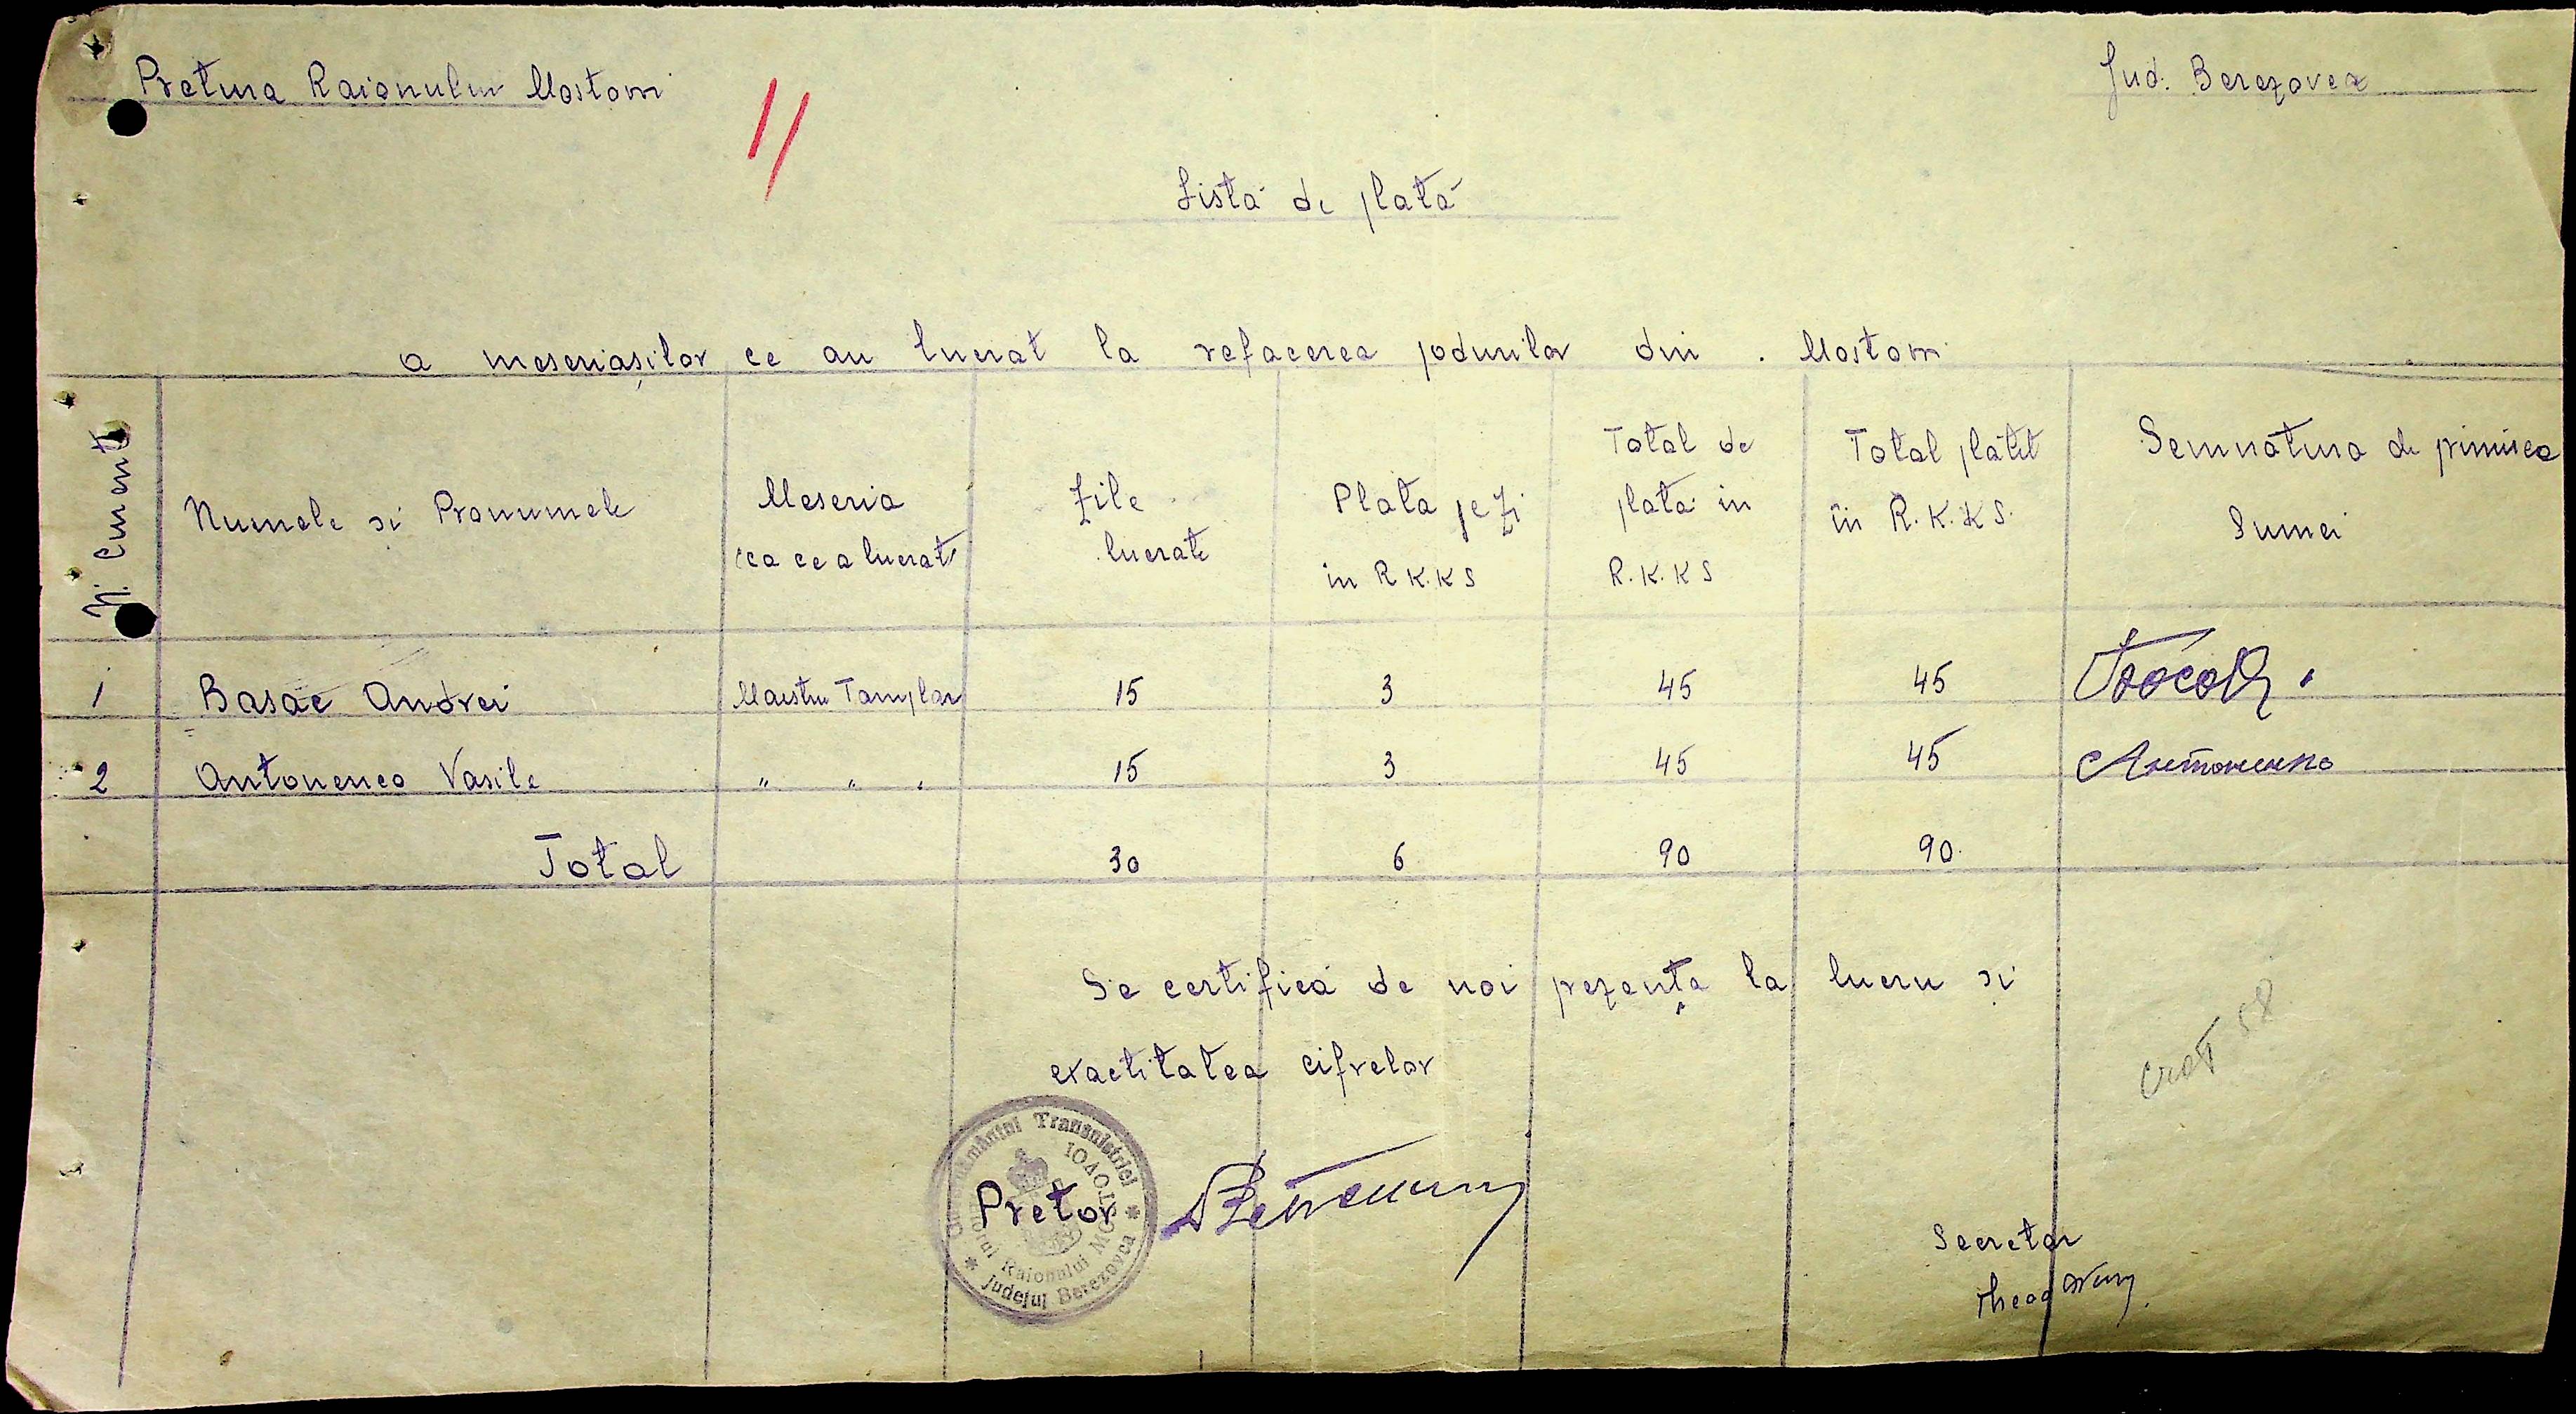 Pretura Raionului Mostovoi
Jud. Berezovca
Listă de plată
a meseriașilor ce au lucrat la refacerea podurilor din Mostovoi
Nr. Curent
Numele si Pronumele
Meseria
cea ce a lucrat
Zile
lucrate
Plata pe zi
in R K.K S
Total de
plată in
R.K.K S
Total plătit
în R.K.K S.
Semnatura de primirea
Sumei
1 Basac Andrei Maistru Tamplar 15 3 45 45
2 Antonenco Vasile " " " 15 3 45 45 Антоненко
Total 30 6 90 90
Se certifică de noi prezența la lucru și
exactitatea cifrelor
Guvernământul Transnistriei
Raionului MOSTOVOI
Județul Berezovca
Pretor
Secretar